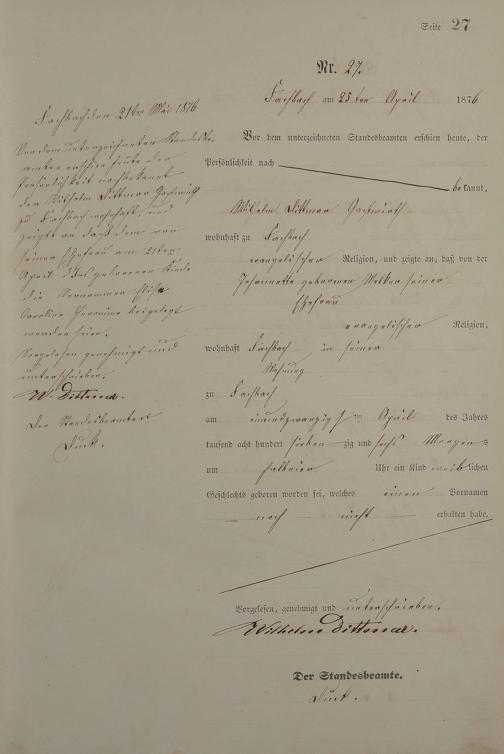 Seite 27
Nr. 27.
Fachbach am 25ten April 1876
Vor dem unterzeichneten Standesbeamten erschien heute, der
Persönlichkeit nach
bekannt,
Wilhelm Dittmar
wohnhaft zu Fachbach
evangelischer Religion, und zeigte an, daß von der
geborenen seiner
Ehefrau
evangelischer Religion,
wohnhaft Fachbach in seiner
Wohnung
zu Fachbach
am einundzwanzigsten April des Jahres
tausend acht hundert siebenzig und sechs Morgens
um halb Uhr ein Kind weiblichen
Geschlechts geboren worden sei, welches einen Vornamen
noch nicht erhalten habe.
Vorgelesen, genehmigt und unterschrieben.
Wilhelm Dittmar.
Der Standesbeamte.
Fachbach den 21ten Mai 1876
Vor dem unterzeichneten Standesbe-
amten erschien heute der
Persönlichkeit nach bekannt
der Wilhelm Dittmar
zu Fachbach wohnhaft, und
zeigte an daß dem von
seiner Ehefrau am 21ten
April geborenen Kinde
die Vornamen Elise
Caroline beigelegt
worden seien.
Vorgelesen genehmigt und
unterschrieben.
W. Dittmar.
Der Standesbeamte